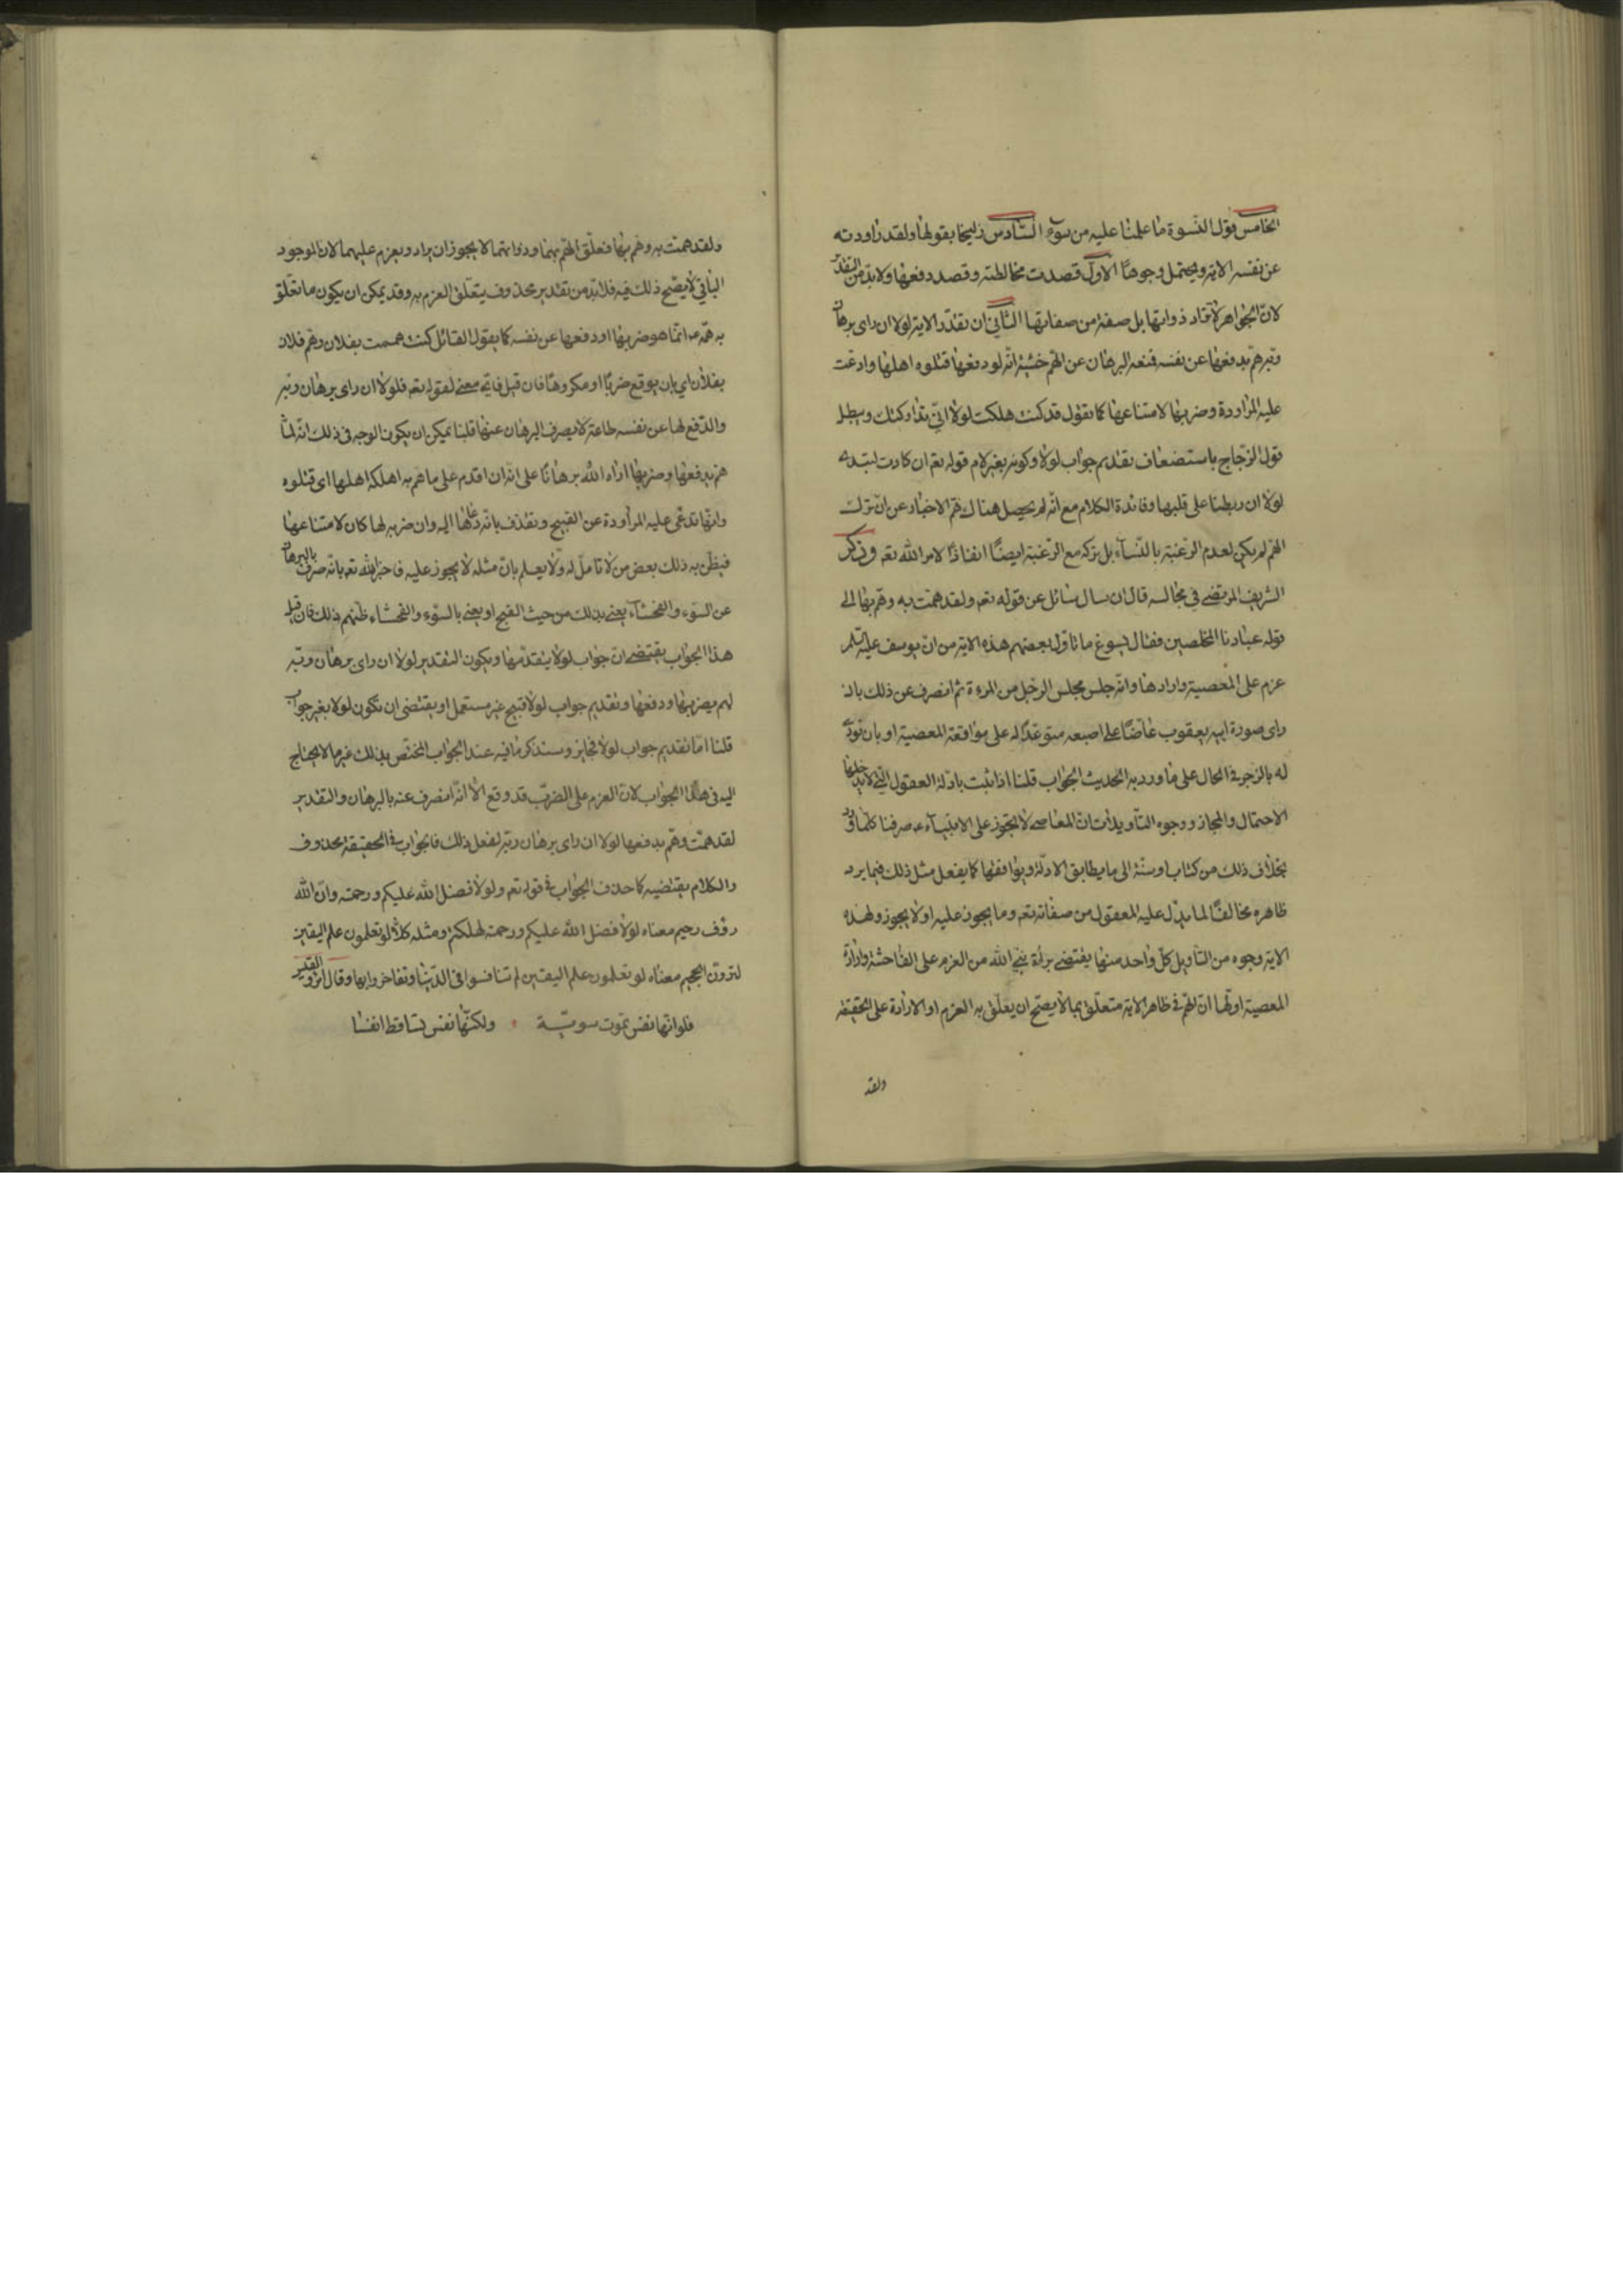 الخامس قول النسوة ما علمنا عليه من سوء السادس زليخا بقولها ولقد راودته
عن نفسه الاية ويحتمل وجوها الاول قصدت مخالطته وقصد دفعها ولابد من التقدير
لان الجواهر لا تراد ذواتها بل صفة من صفاتها الثاني ان تقدر الاية لولا ان راى برهان
ربه هم بدفعها عن نفسه فمنعه البرهان عن الهم خشية انه لو دفعها قتلوه اهلها وادعت
عليه المراودة وضربها لامتناعها كما تقول قد كنت هلكت لولا اني تداركتك ويبطل
قول الزجاج باستضعاف تقديم جواب لولا وكونه بغير لام قوله تع ان كادت لتبدى به
لولا ان ربطنا على قلبها وفائدة الكلام مع انه لم يحصل هناك هم الاخبار عن ان ترك
الهم لم يكن لعدم الرغبة بالنساء بل تركه مع الرغبة ايضا انفاذا لامر الله تع وذكر
الشريف المرتضى في مجالسه قال ان سال سائل عن قوله تع ولقد همت به وهم بها الى
قوله عبادنا المخلصين فقال يسوغ ما تاول بعضهم هذه الاية من ان يوسف عليه السلم
عزم على المعصية وارادها وانه جلس مجلس الرجل من المرءة ثم انصرف عن ذلك بان
راى صورة ابيه يعقوب عاضا على اصبعه متوعدا له على مواقعة المعصية او بان نودى
له بالزجر في الحال على ما ورد به الحديث الجواب قلنا اذا ثبت بادلة العقول التي لا يدخلها
الاحتمال والمجاز ووجوه التاويلات ان المعاصي لا تجوز على الانبياء ع صرفنا كلما ورد
بخلاف ذلك من كتاب او سنة الى ما يطابق الادلة ويوافقها كما يفعل مثل ذلك فيما يرد
ظاهره مخالفا لما يدل عليه العقول من صفاته تع وما يجوز عليه او لا يجوز ولهذه
الاية وجوه من التاويل كل واحد منها يقتضي براءة نبي الله من العزم على الفاحشة وارادة
المعصية اولها ان الهم في ظاهر الاية متعلق بما لا يصح ان يعلق به العزم او الارادة على الحقيقة
ولقد
ولقد همت به وهم بها فعلق الهم بهما وذواتهما لا يجوز ان يراد ويعزم عليهما لان الموجود
الباقي لا يصح ذلك فيه فلابد من تقدير محذوف يتعلق العزم به وقد يمكن ان يكون ما تعلق
به همه ع انما هو ضربها او دفعها عن نفسه كما يقول القائل كنت هممت بفلان وهم فلان
بفلان اي بان يوقع ضربا او مكروها فان قيل فاي معنى لقوله تع فلولا ان راى برهان ربه
والدفع لها عن نفسه طاعة لا يصرف البرهان عنها قلنا يمكن ان يكون الوجه في ذلك انه لما
هم بدفعها وضربها اراه الله برهانا على انه ان اقدم على ما هم به اهلكه اهلها اي قتلوه
وانها تدعي عليه المراودة عن القبيح وتقذف بانه دعاها اليه وان ضربه لها كان لامتناعها
فيظن به ذلك بعض من لا تامل له ولا يعلم بان مثله لا يجوز عليه فاخبر الله تع بانه صرف بالبرهان
عن السوء والفحشاء يعني بذلك من حيث القبح او يعني بالسوء والفحشاء ظنهم ذلك فان قيل
هذا الجواب يقتضي ان جواب لولا يتقدمها ويكون التقدير لولا ان راى برهان ربه
لهم بضربها ودفعها وتقديم جواب لولا قبيح غير مستعمل او يقتضي ان تكون لولا بغير جواب
قلنا اما تقديم جواب لولا فجايز وسنذكر ما فيه عند الجواب المختص بذلك غير ما لا يحتاج
اليه في هذا الجواب لان العزم على الضرب قد وقع الا انه انصرف عنه بالبرهان والتقدير
لقد همت وهم بدفعها لولا ان راى برهان ربه لفعل ذلك فالجواب في الحقيقة محذوف
والكلام يقتضيه كما حذف الجواب في قوله تع ولولا فضل الله عليكم ورحمته وان الله
رؤف رحيم معناه لولا فضل الله عليكم ورحمته لهلكتم ومثله كلا لو تعلمون علم اليقين
لترون الجحيم معناه لو تعلمون علم اليقين لم تنافسوا في الدنيا وتفاخروا بها وقال امرؤ القيس
فلو انها نفس تموت سوية ولكنها نفس تساقط انفسا